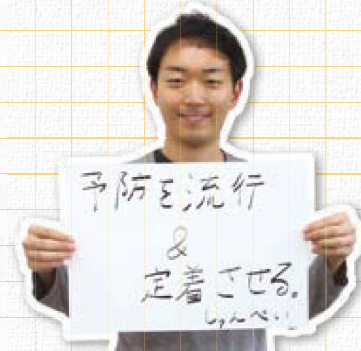 予防を流行
&
定着させる。
しゅんぺい